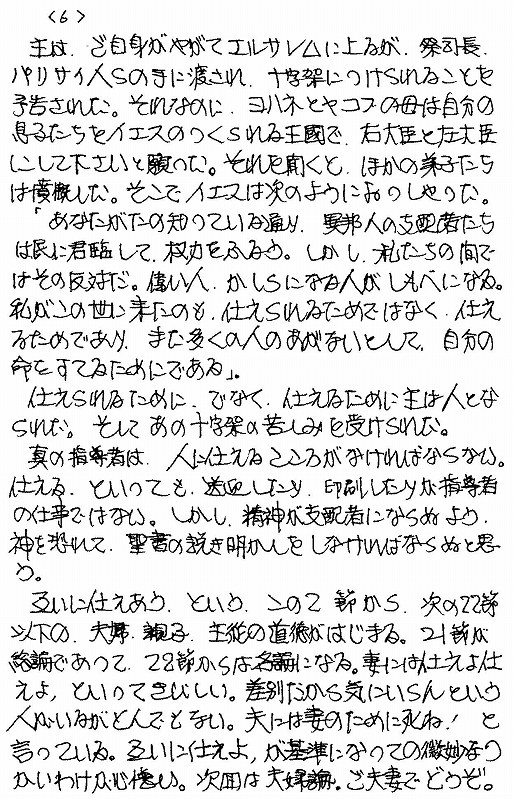 〈6〉
主は、ご自身がやがてエルサレムに上るが、祭司長、
パリサイ人らの手に渡され、十字架につけられることを
予告された。それなのに、ヨハネとヤコブの母は自分の
息子たちをイエスのつくられる王國で、右大臣と左大臣
にして下さいと願った。それを聞くと、ほかの弟子たち
は憤慨した。そこでイエスは次のようにおっしゃった。
「あなたがたの知っている通り、異邦人の支配者たち
は民に君臨して、权力をふるう。しかし、私たちの間で
はその反対だ。偉い人、かしらになる人がしもべになる。
私がこの世に来たのも、仕えられるためではなく、仕え
るためであり、また多くの人のあがないとして、自分の
命をすてるためにである」。
仕えられるために、でなく、仕えるために主は人とな
られた。そしてあの十字架の苦しみを受けられた。
真の指導者は、人に仕えるこころがなければならない。
仕える、といっても、送迎したり、印刷したりが指導者
の仕事ではない。しかし、精神が支配者にならぬよう、
神を恐れて、聖書の説き明かしをしなければならぬと思
う。
互いに仕えあう、という、この21節から、次の22節
以下の、夫婦、親子、主従の道徳がはじまる。21節が
総論であって、22節からは各論になる。妻には仕えよ仕
えよ、といってきびしい。差別だから気にいらんという
人がいるがとんでもない。夫には妻のために死ね！と
言っている。互いに仕えよ、が基準になっての微妙な
かいわけが心憎い。次回は夫婦論。ご夫妻でどうぞ。